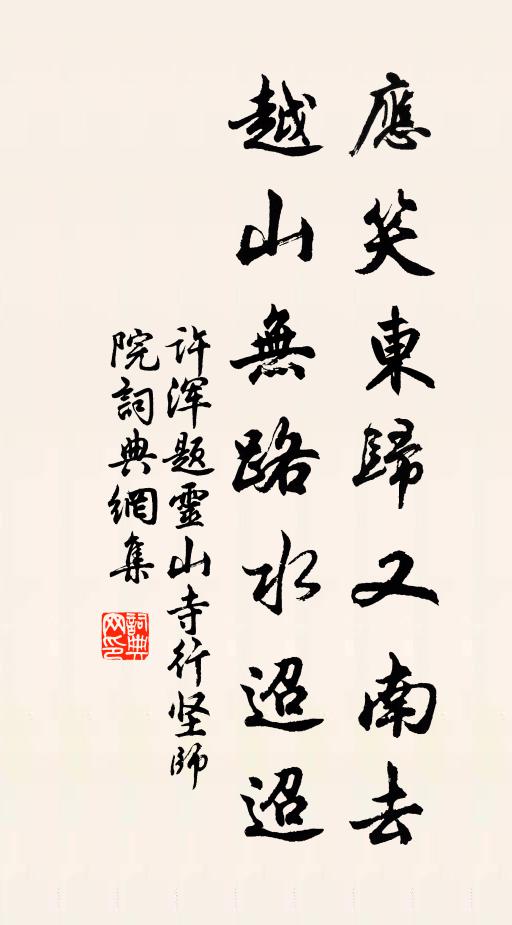 應笑東歸又南去
越山無路水迢迢
许浑题靈山寺行坚師
院詞典網集
詞典
网印